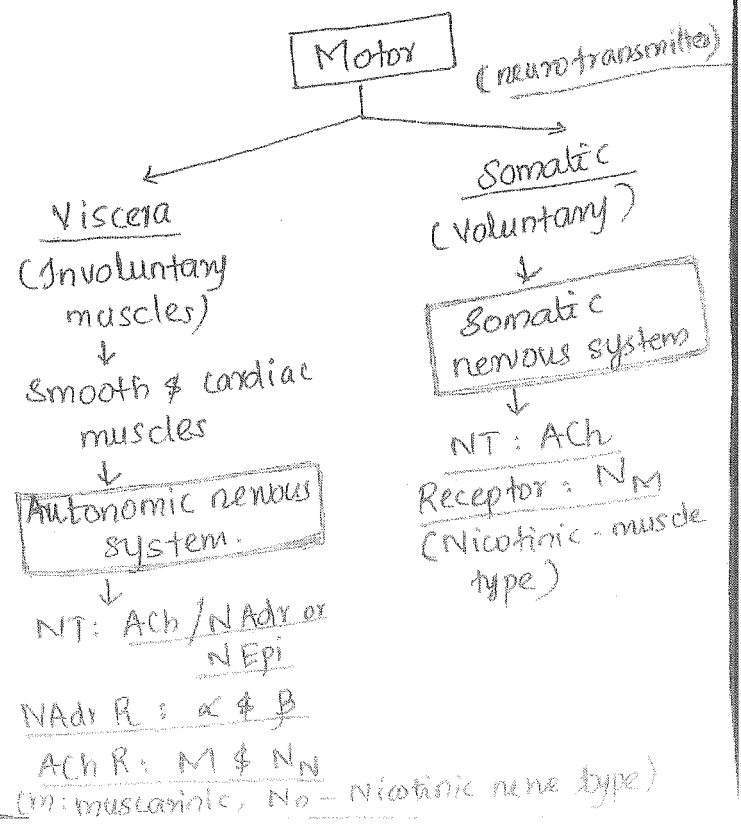 Motor
(neurotransmitter)
Viscera
(Involuntary
muscles)
↓
Smooth & cardiac
muscles
↓
Autonomic nervous
system.
↓
NT: ACh / NAdr or
NEpi
NAdr R : α & β
ACh R: M & NN
(m: muscarinic, Nn - Nicotinic nerve type)
Somatic
(Voluntary)
↓
Somatic
nervous system
↓
NT : ACh
Receptor : NM
(Nicotinic - muscle
type)